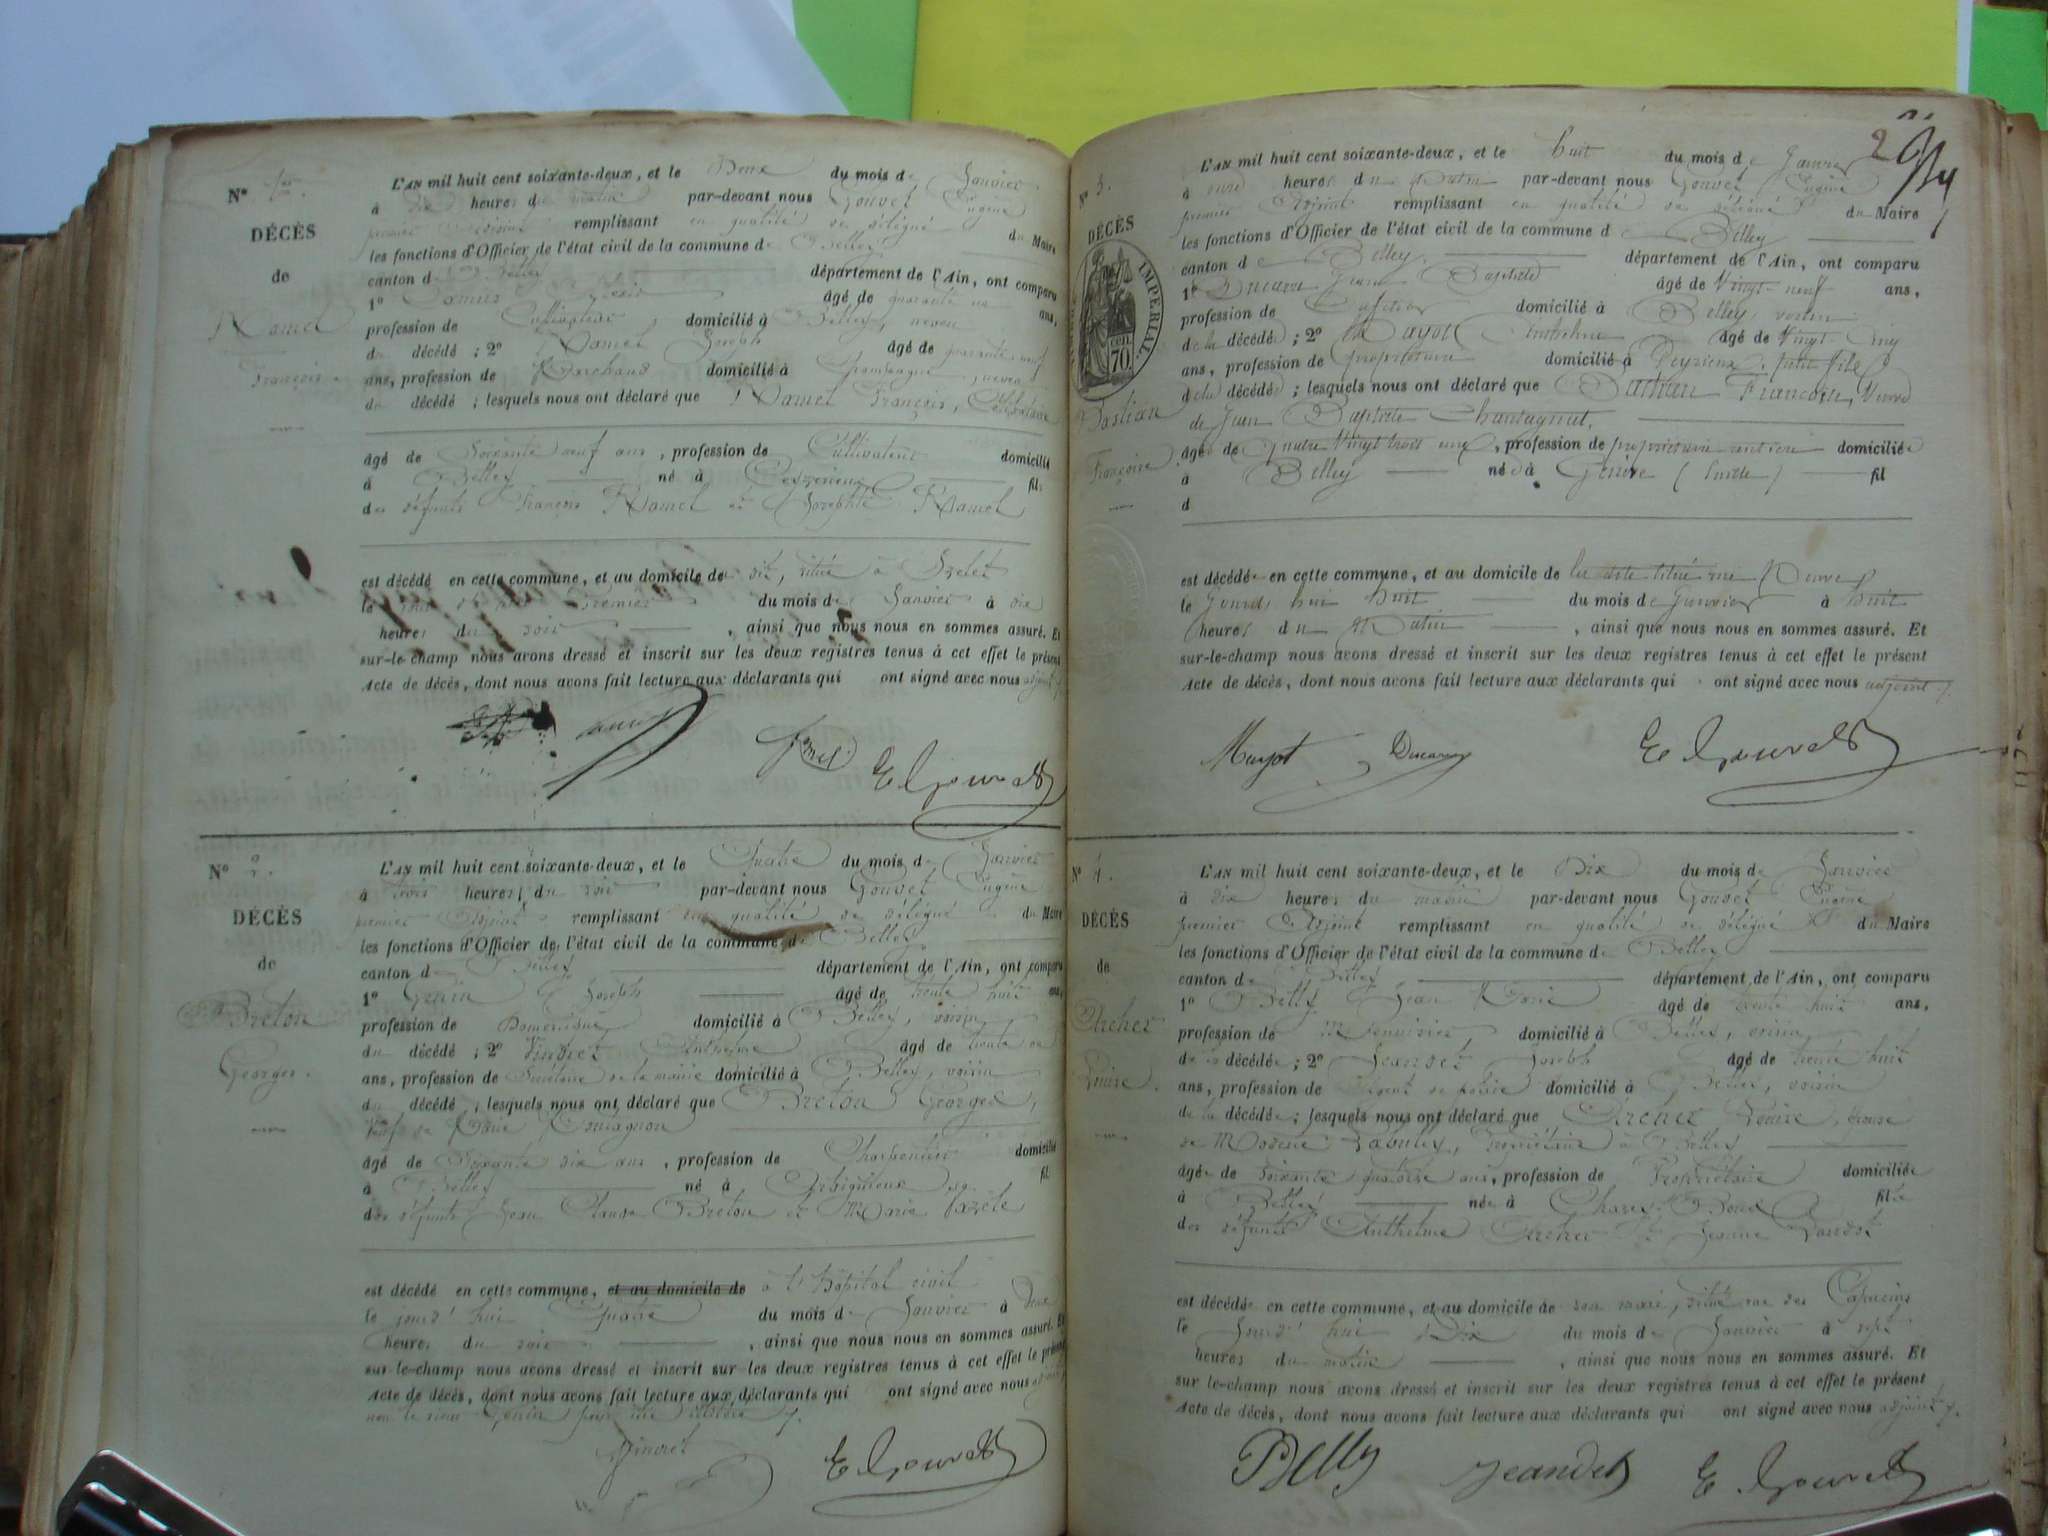 N° 1er.
DÉCÈS
de
Ramel
François.
L'AN mil huit cent soixante-deux, et le Deux du mois de Janvier
à dix heures du matin par-devant nous Gouvet Eugène
premier Adjoint remplissant en qualité de délégué du Maire
les fonctions d'Officier de l'état civil de la commune de Belley
canton de Belley département de l'Ain, ont comparu
1° âgé de quarante un ans,
profession de Cultivateur, domicilié à Belley, neveu
du décédé ; 2° Ramel Joseph âgé de quarante neuf
ans, profession de Marchand domicilié à Champagne, neveu
du décédé ; lesquels nous ont déclaré que Ramel François, Célibataire
âgé de Soixante neuf ans, profession de Cultivateur domicilié
à Belley né à fils
des défunts François Ramel et Josephte Ramel
est décédé en cette commune, et au domicile du dit, situé à
le Premier du mois de Janvier à dix
heures du soir, ainsi que nous nous en sommes assuré. Et
sur-le-champ nous avons dressé et inscrit sur les deux registres tenus à cet effet le présent
Acte de décès, dont nous avons fait lecture aux déclarants qui ont signé avec nous adjoint
Ramel E Gouvet
N° 2.
DÉCÈS
de
Breton
Georges.
L'AN mil huit cent soixante-deux, et le Quatre du mois de Janvier
à trois heures du soir par-devant nous Gouvet Eugène
premier Adjoint remplissant en qualité de délégué du Maire
les fonctions d'Officier de l'état civil de la commune de Belley
canton de Belley département de l'Ain, ont comparu
1° Genin Joseph âgé de trente huit ans,
profession de Domestique domicilié à Belley, voisin
du décédé ; 2° Vindret Anthelme âgé de trente un
ans, profession de Secrétaire de la mairie domicilié à Belley, voisin
du décédé, lesquels nous ont déclaré que Breton Georges,
Veuf de Marie
âgé de Soixante dix ans, profession de Charpentier domicilié
à Belley né à Arbignieux fils
des défunts Jean Claude Breton et Marie
est décédé en cette commune, et au domicile de à l'hôpital civil
le jourd'hui Quatre du mois de Janvier à deux
heures du soir, ainsi que nous nous en sommes assuré. Et
sur-le-champ nous avons dressé et inscrit sur les deux registres tenus à cet effet le présent
Acte de décès, dont nous avons fait lecture aux déclarants qui ont signé avec nous
non le sieur Genin pour être illétéré
Vindret E Gouvet
N° 3.
DÉCÈS
IMPÉRIAL.
70
Bastian
Françoise
L'AN mil huit cent soixante-deux, et le huit du mois de Janvier
à onze heures du Matin par-devant nous Gouvet, Eugène
premier Adjoint remplissant en qualité de délégué du Maire
les fonctions d'Officier de l'état civil de la commune de Belley
canton de Belley département de l'Ain, ont comparu
1° Ducarre Jean Baptiste âgé de Vingt-neuf ans,
profession de Cafetier domicilié à Belley, voisin
de la décédée ; 2° Anthelme âgé de Vingt cinq
ans, profession de propriétaire domicilié à Peyrieux, petit fils
de la décédée ; lesquels nous ont déclaré que Bastian Françoise, Veuve
de Jean Baptiste Chantagnut,
âgée de Quatre Vingt trois ans, profession de propriétaire rentière domiciliée
à Belley née à Genève (Suisse) fil
d
est décédée en cette commune, et au domicile de
le Jourd'hui huit du mois de Janvier à huit
heures du Matin, ainsi que nous nous en sommes assuré. Et
sur-le-champ nous avons dressé et inscrit sur les deux registres tenus à cet effet le présent
Acte de décès, dont nous avons fait lecture aux déclarants qui ont signé avec nous adjoint
Ducarre E Gouvet
N° 4.
DÉCÈS
de
Archer
Louise.
L'AN mil huit cent soixante-deux, et le Dix du mois de Janvier
à dix heures du matin par-devant nous Gouvet Eugène
premier Adjoint remplissant en qualité de délégué du Maire
les fonctions d'Officier de l'état civil de la commune de Belley
canton de Belley département de l'Ain, ont comparu
1° Belly Jean Marie âgé de trente huit ans,
profession de Menuisier, domicilié à Belley, voisin
de la décédée ; 2° Jeandet Joseph âgé de trente huit
ans, profession de Agent de police domicilié à Belley, voisin
de la décédée ; lesquels nous ont déclaré que Archer Louise, épouse
de Modeste Labully, propriétaire à Belley
âgée de soixante quatorze ans, profession de Propriétaire domiciliée
à Belley née à filie
des défunts Anthelme Archer et Jeanne
est décédée en cette commune, et au domicile de son mari, situé rue des Capucins
le Jourd'hui Dix du mois de Janvier à sept
heures du matin, ainsi que nous nous en sommes assuré. Et
sur-le-champ nous avons dressé et inscrit sur les deux registres tenus à cet effet le présent
Acte de décès, dont nous avons fait lecture aux déclarants qui ont signé avec nous adjoint
Belly Jeandet E Gouvet